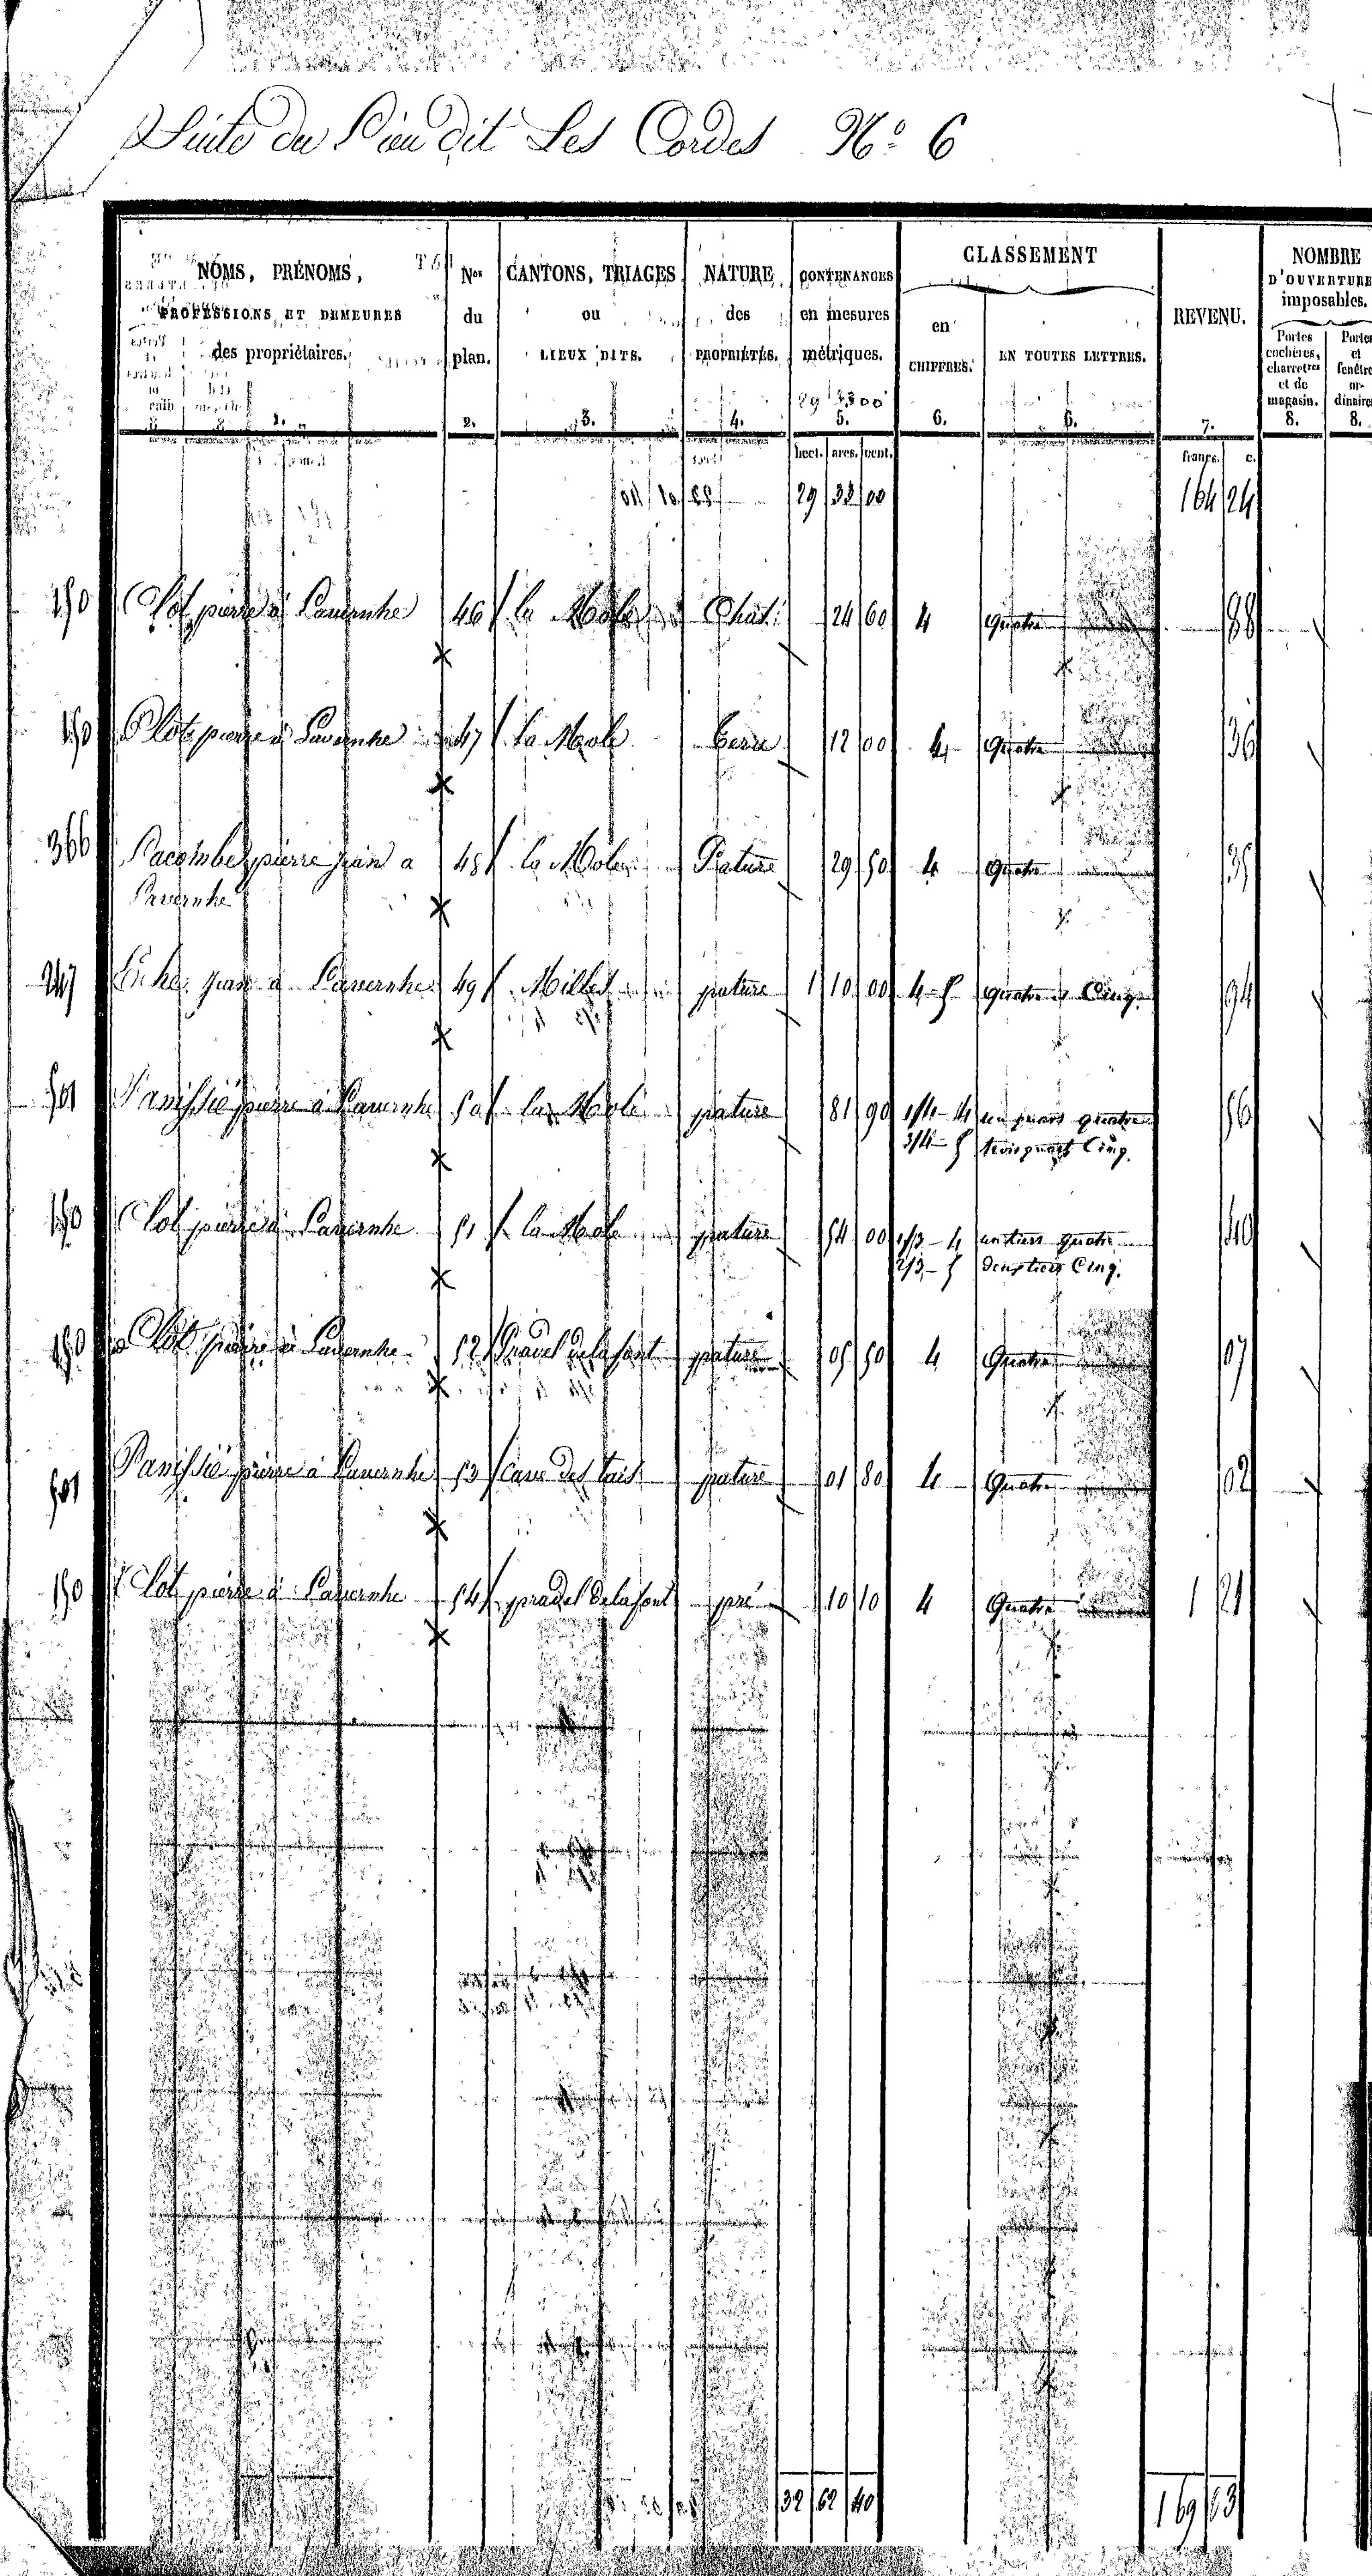 Suite du Lieu dit Les Cordes N° 6
NOMS, PRÉNOMS, PROFESSIONS, ET DEMEURES des propriétaires. 1.
Nos du plan. 2.
CANTONS, TRIAGES ou LIEUX DITS. 3.
NATURE des PROPRIÉTÉS. 4.
CONTENANCES en mesures métriques. 5.
CLASSEMENT
en CHIFFRES. 6.
EN TOUTES LETTRES. 6.
REVENU. 7.
NOMBRE D'OUVERTURE imposables.
Portes cochères, charretres et de magasin. 8.
Portes et fenêtre or- dinaire 8.
hect. ares. cent. francs. c.
29 33 00 164 24
150 Clot pierre à Lavernhe 46 la Mole Chat. 24 60 4 Quatre 88
150 Clot pierre à Lavernhe 47 la Mole terre 12 00 4 Quatre 36
366 Lacombe pierre jean a 48 la Mole Pature 29 50 4 Quatre 35
Lavernhe
247 jean à Lavernhe 49 pature 1 10 00 4-5 Quatre et Cinq. 94
501 Panissié pierre à Lavernhe 50 la Mole pature 81 90 1/4-4 un quart quatre 56
3/4-5 trois quart Cinq.
150 Clot pierre à Lavernhe 51 la Mole pature 54 00 1/3-4 un tiers quatre 40
2/3-5 deux tiers Cinq.
150 Clot pierre à Lavernhe 52 Pradel delafont pature 05 50 4 Quatre 07
501 Panissié pierre à Lavernhe 53 pature 01 80 4 Quatre 02
150 Clot pierre à Lavernhe 54 pradel delafont pré 10 10 4 Quatre 1 21
32 62 40 169 03